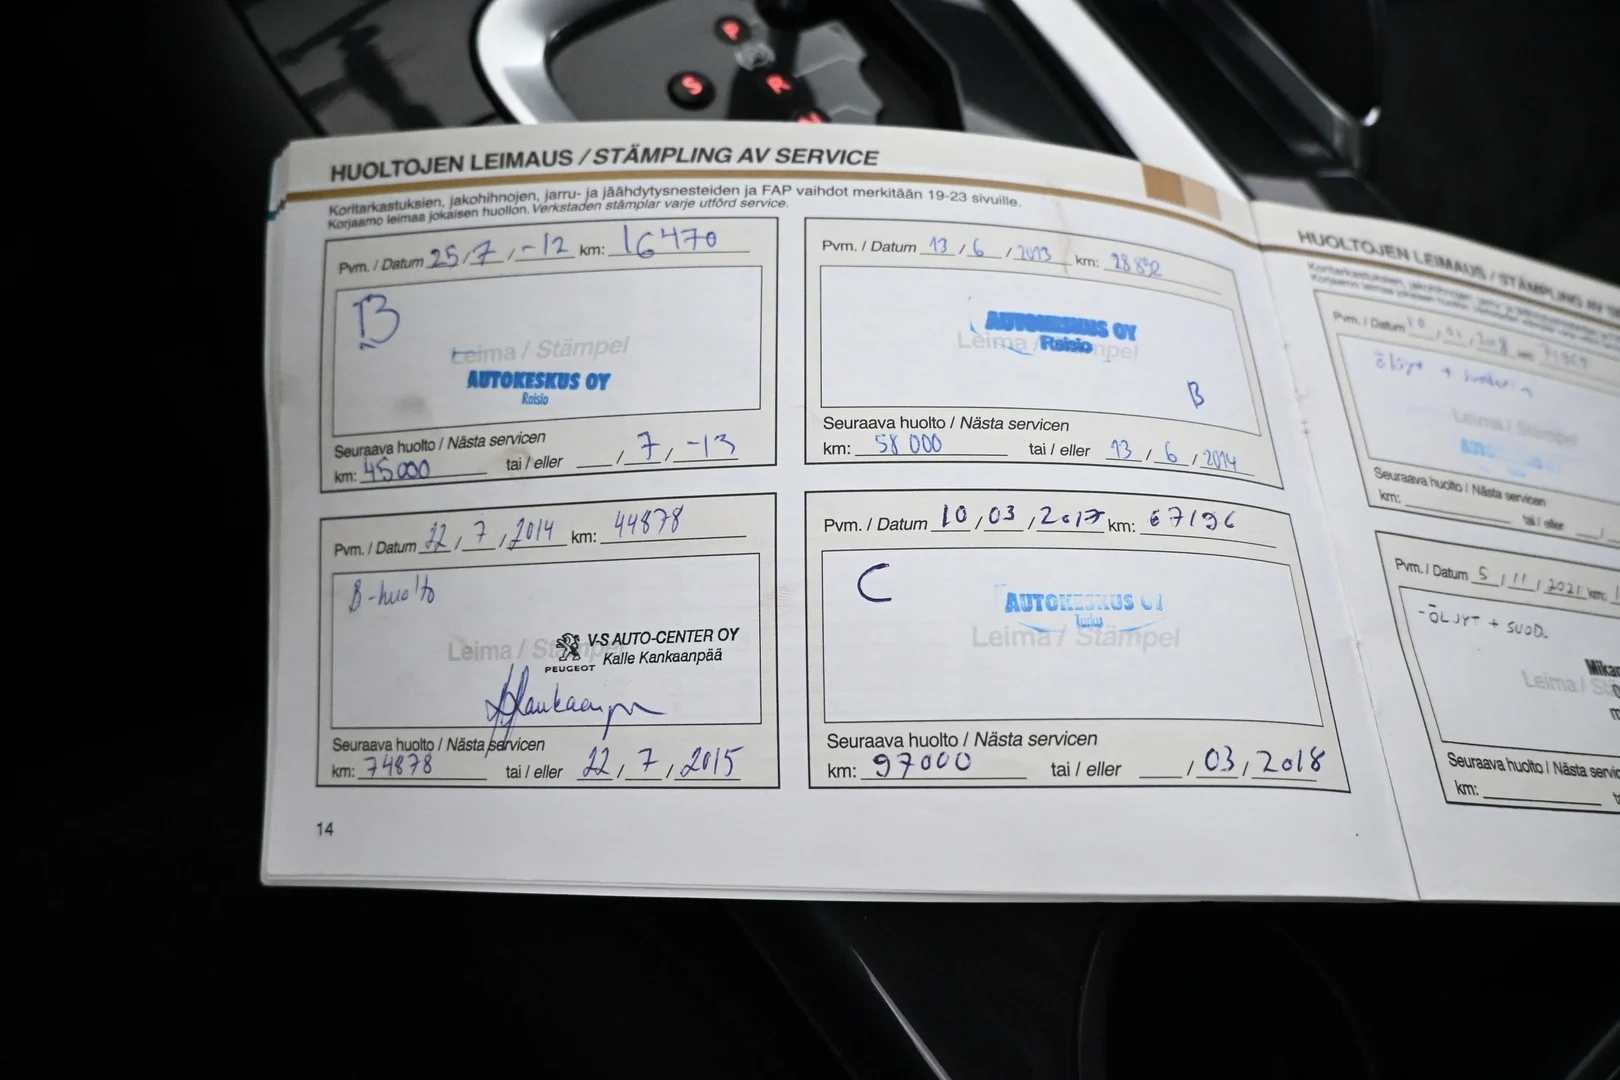 P
S
R
N
HUOLTOJEN LEIMAUS / STÄMPLING AV SERVICE
Koritarkastuksien, jakohihnojen, jarru- ja jäähdytysnesteiden ja FAP vaihdot merkitään 19-23 sivuille.
Korjaamo leimaa jokaisen huollon. Verkstaden stämplar varje utförd service.
Pvm. / Datum 25 / 7 / -12 km: 16470
B
Leima / Stämpel
AUTOKESKUS OY
Raisio
Seuraava huolto / Nästa servicen
km: 45000 tai / eller / 7 / -13
Pvm. / Datum 13 / 6 / 2013 km: 28892
AUTOKESKUS OY
Leima / Raisio
B
Seuraava huolto / Nästa servicen
km: 58 000 tai / eller 13 / 6 / 2014
Pvm. / Datum 22 / 7 / 2014 km: 44878
B-huolto
Leima / Stämpel
V-S AUTO-CENTER OY
PEUGEOT Kalle Kankaanpää
Seuraava huolto / Nästa servicen
km: 74878 tai / eller 22 / 7 / 2015
Pvm. / Datum 10 / 03 / 2017 km: 67196
C
AUTOKESKUS OY
Turku
Leima / Stämpel
Seuraava huolto / Nästa servicen
km: 97000 tai / eller / 03 / 2018
14
HUOLTOJEN LEIMAUS / STÄMPLING AV
Pvm. / Datum
Öljyt +
Leima / Stämpel
Seuraava huolto / Nästa servicen
km: tai / eller /
Pvm. / Datum 5 / 11 / 2021 km:
-ÖLJYT + SUOD.
Leima /
Seuraava huolto / Nästa
km: